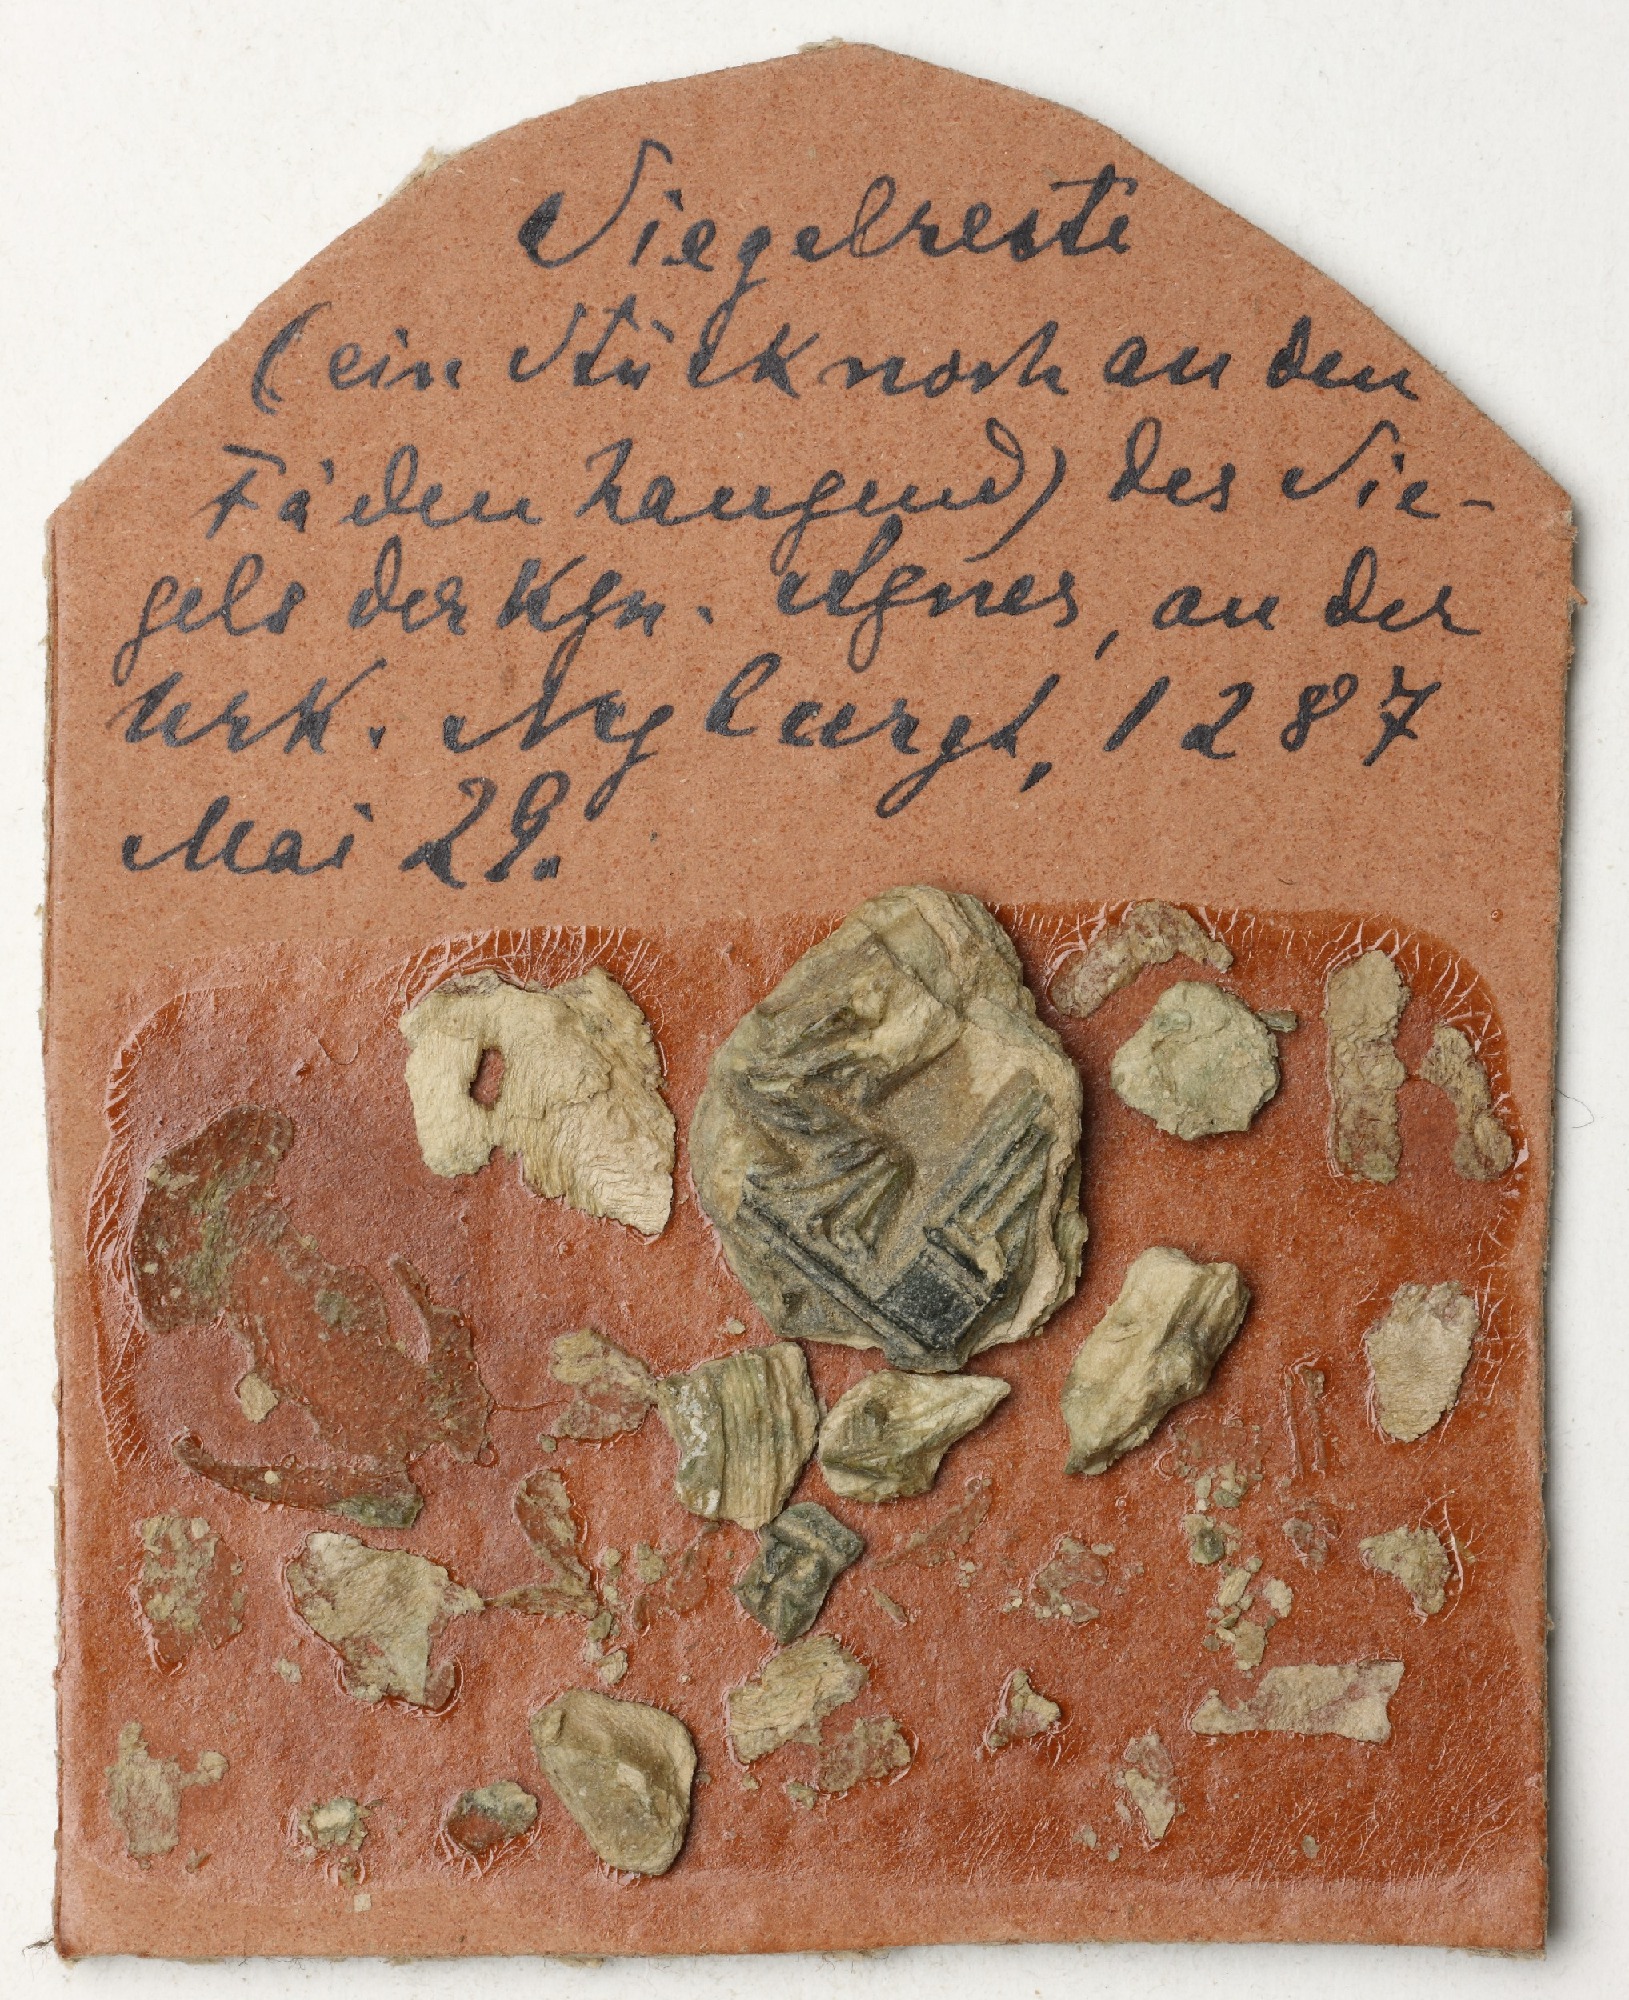 Siegelreste
(ein Stück noch an den
Fäden hangend) des Sie-
gels der Kgn. Agnes, an der
Urk. Nyborgh, 1287
Mai 29.